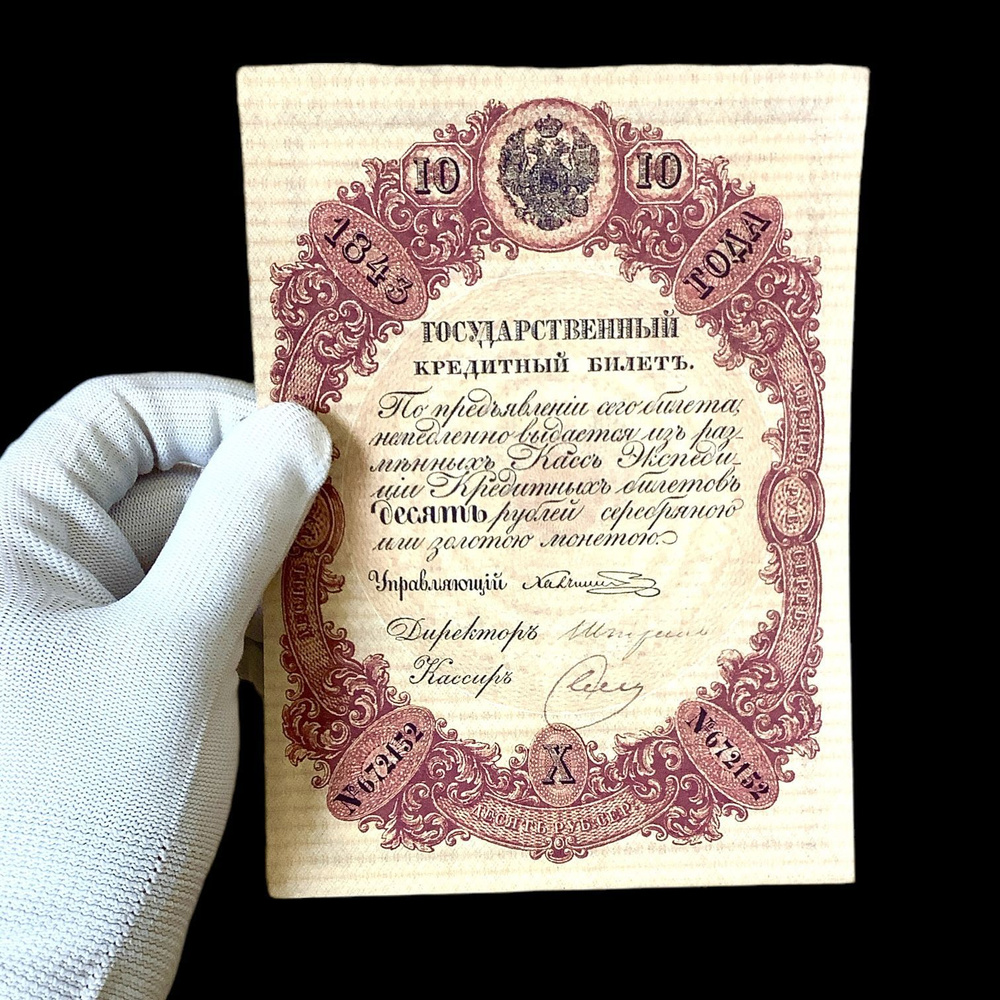 10 10
1843 ГОДА
ГОСУДАРСТВЕННЫЙ
КРЕДИТНЫЙ БИЛЕТЪ.
По предъявленіи сего билета,
немедленно выдается изъ раз-
мѣнныхъ Кассъ Экспеди-
ціи Кредитныхъ билетовъ
десять рублей серебряною
или золотою монетою.
Управляющій
Директоръ
Кассиръ
№672152 №672152
X
ДЕСЯТЬ РУБ. СЕР.